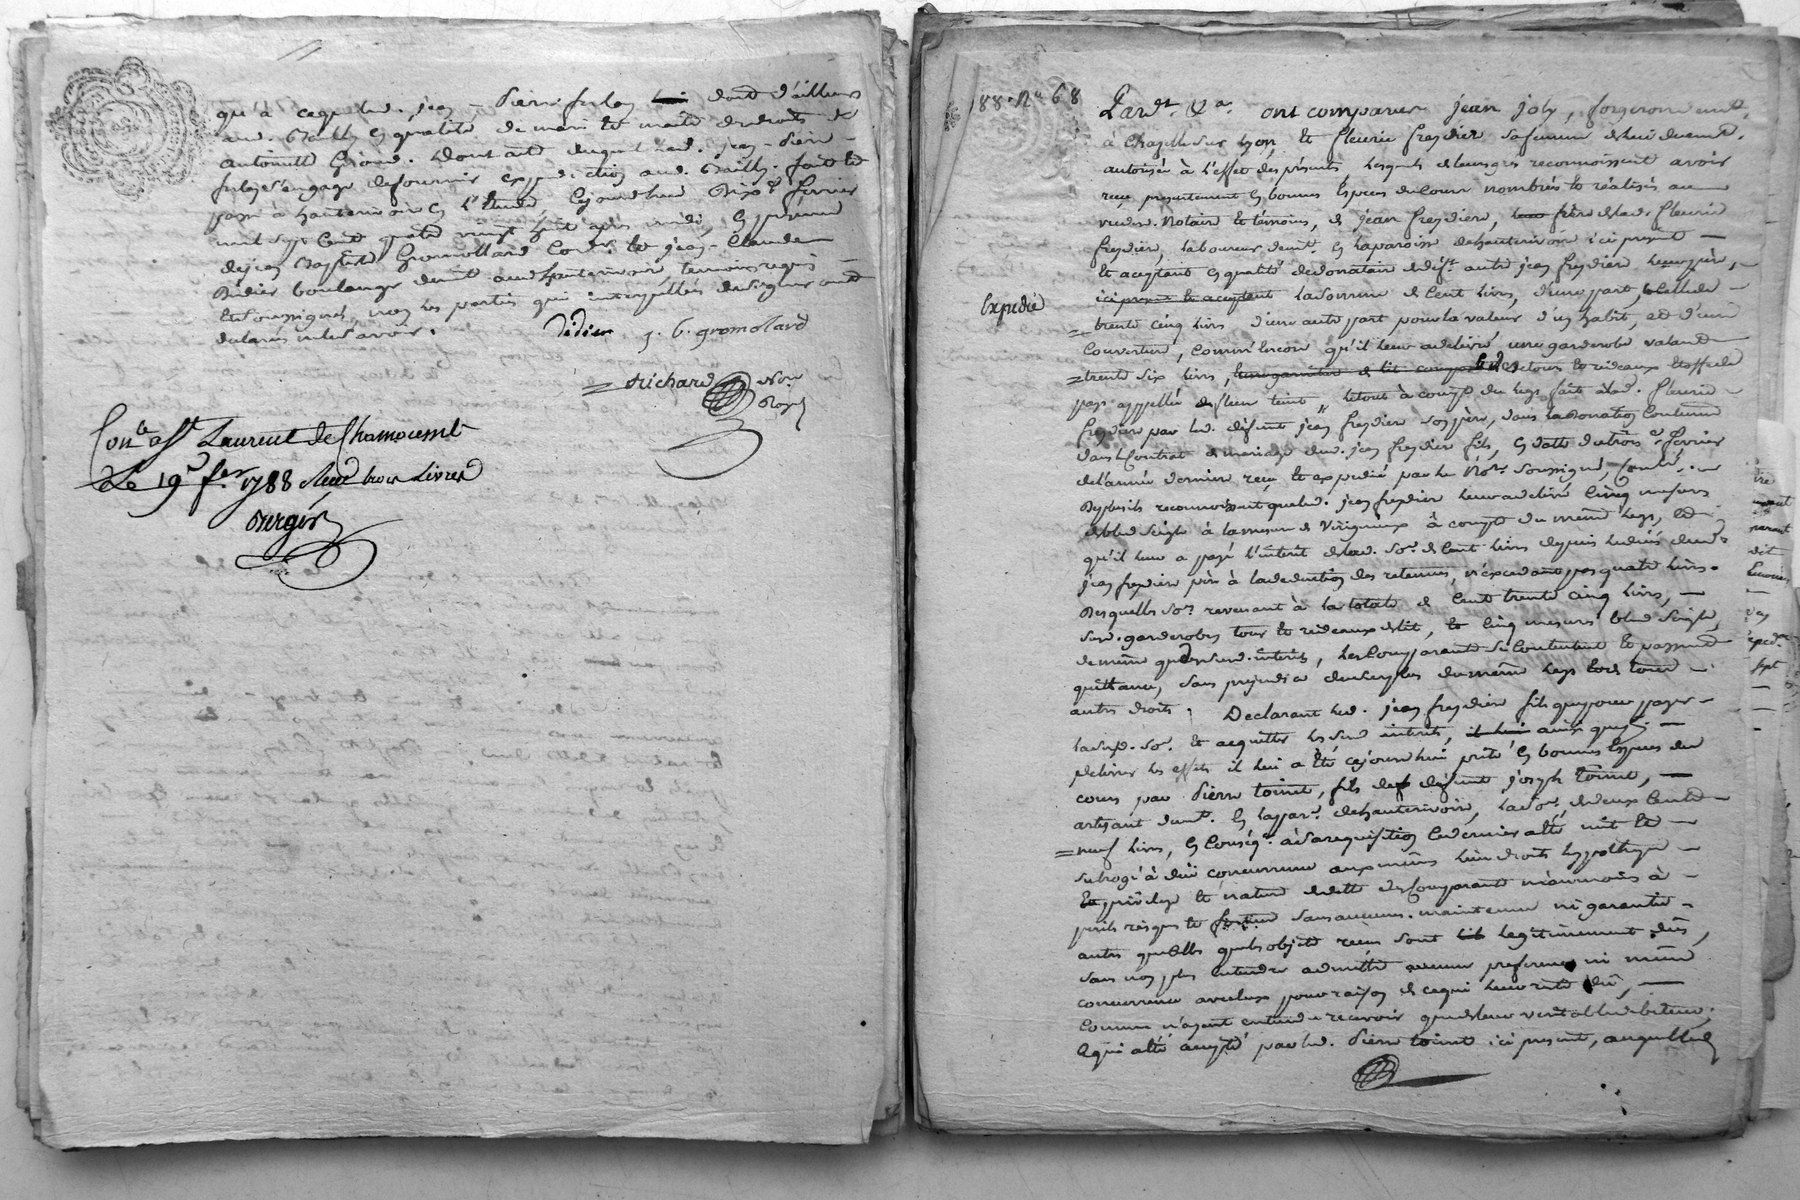 qu'à ce que led. jean - Pierre
aud. en qualité de mari et maitre des droits de
Antoinette Giroud. dont acte duquel led. jean - Pierre
s'engage de fournir expedition aud. fait et
passé à hauterivoir en l'étude, cejourd'hui dix fevrier
mil sept cent quatre vingt huit après midi, en présence
de jean Baptiste Gromollard Cord.r et jean - Claude
Didier boulanger demt aud. hauterivoir témoins requis
et soussignés, non les parties qui interpellées de signer ont
déclaré ne le savoir.
Didier j. b. gromolard
Richard Nore
Royal
Con.le à St Laurent de Chamousset
Le 19e fer 1788 Reçu trois Livres
88. No 68
Pardt &a ont comparu jean joly, forgeron demt
à Chazelle sur Lyon et fleurie freydier sa femme de lui duemt
autorisée à l'effet des présentes, lesquels de leur gré reconnoissent avoir
reçu presentement en bonnes Espèces de cour nombrées et réalisées au
vu desd. Notaire et témoins, de jean freydier, frère de lad. fleurie
freydier, laboureur demt en la paroisse de hauterivoir ici présent
et acceptant en qualité de donataire de deft autre jean freydier leur père,
ici présent et acceptant la somme de Cent livres, d'une part, et celle de
Expedié
trente cinq livres d'une autre part pour la valeur d'un habit, et d'une
Couverture, comm'encore qu'il leur a delivré une garderobe valant
trente six livres, tours et rideaux étoffe de
pays appellée de fleur teint, le tout à compte du legs fait à lad. fleurie
freydier par led. défunt jean freydier son père, dans la donation contenue
dans le Contrat de mariage dud. jean freydier fils, en datte du trois fevrier
de l'année dernière reçu et expedié par le Nore soussigné, Contlé.
Desplus ils reconnoissent que led. jean freydier leur a delivré Cinq mesures
de bled seigle à la mesure de Virigneux à compte du même legs, et
qu'il leur a payé l'intérêt de lad. Sore de Cent livres depuis le décès dud.
jean freydier père à la deduction des retenues, n'excedant pas quatre livres.
Desquelles Sores revenant à la totale de Cent trente cinq livres,
susd. garderobes tour et rideaux de lit, et Cinq mesures bled Seigle,
de même que desd. intérêts, les Comparants se contentent et passent
quittance, sans préjudice du surplus du même legs et de tous
autres droits; Declarant led. jean freydier fils que pour payer
lasusd. Sore et acquitter les susd. interêts, ainsi que
delivrer les effets il lui a été cejourd'hui prêté en bonnes Espèces de
cours par Pierre toinet, fils de défunt joseph toinet,
artisant demt. en la parre de hauterivoir, la Sore de deux Cent
neuf livres, en Conséq. à sa requisition ce dernier a été mit et
subrogé à due concurrence aux mêmes lieu droits hypotheque
et privilege et nature de dette des Comparants néanmoins à
perils risques et fortune sans aucune maintenue ni garantie
autres que celles que les objets reçus sont légitimement dûs,
sans non plus entendre admettre aucune preference ni même
concurrence avec lux pour raison de ce qui leur reste dû,
comme n'ayant entendu recevoir que de leur veritable debiteur.
Ce qui a été accepté par led. Pierre toinet ici présent, auquel led.